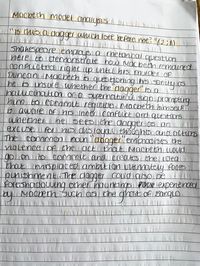 Macbeth model analysis
"Is this a dagger which I see before me?" (2:1)
Shakespeare employs a rhetorical question
here to demonstrate how Macbeth remained
conflicted right up until his murder of
Duncan. Macbeth is questioning his sanity as
he is unsure whether the "dagger" is a
hallucination or a supernatural sign prompting
him to commit regicide. Macbeth himself
is aware of his inner conflict and questions
whether he sees the dagger as an
excuse for his disloyal thoughts and actions.
The common noun "dagger" emphasises the
violence of the act that Macbeth would
go on to commit and creates the idea
that misplaced ambition ultimately faces
punishment. The dagger could also be
foreshadowing other hauntings experienced
by Macbeth such as the ghost of Banquo.